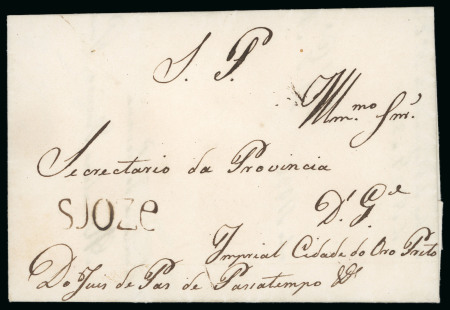 S. P.
Illm.mo Snr.
Secretario da Provincia
SJOZe
D. G.e
Imprial Cidade do Oro Prêto
Do Juis de Pas de Passatempo &&